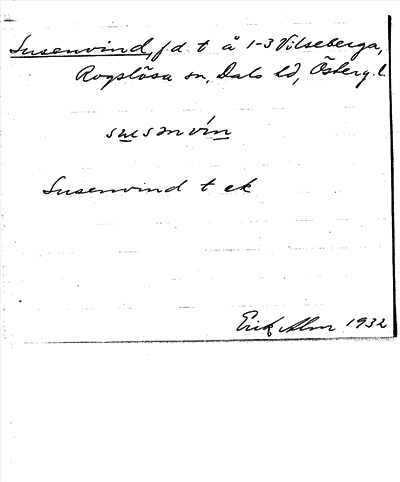 Susenvind, f d. t å 1-3 Vilseberga,
Rogslösa sn, Dals hd, Österg. l.
susənvín
Susenvind t ek
Erik Alm 1932